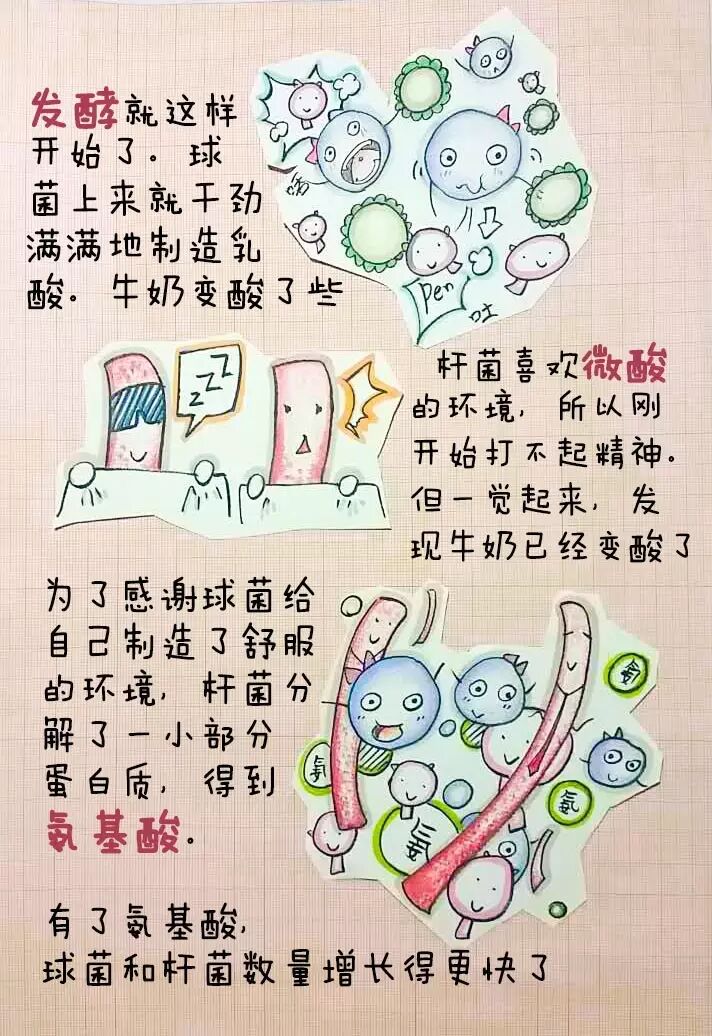 发酵就这样
开始了。球
菌上来就干劲
满满地制造乳
酸。牛奶变酸了些
Pen
吐
ZZZ
杆菌喜欢微酸
的环境，所以刚
开始打不起精神。
但一觉起来，发
现牛奶已经变酸了
为了感谢球菌给
自己制造了舒服
的环境，杆菌分
解了一小部分
蛋白质，得到
氨基酸。
氨
氨
氨
氨
有了氨基酸，
球菌和杆菌数量增长得更快了